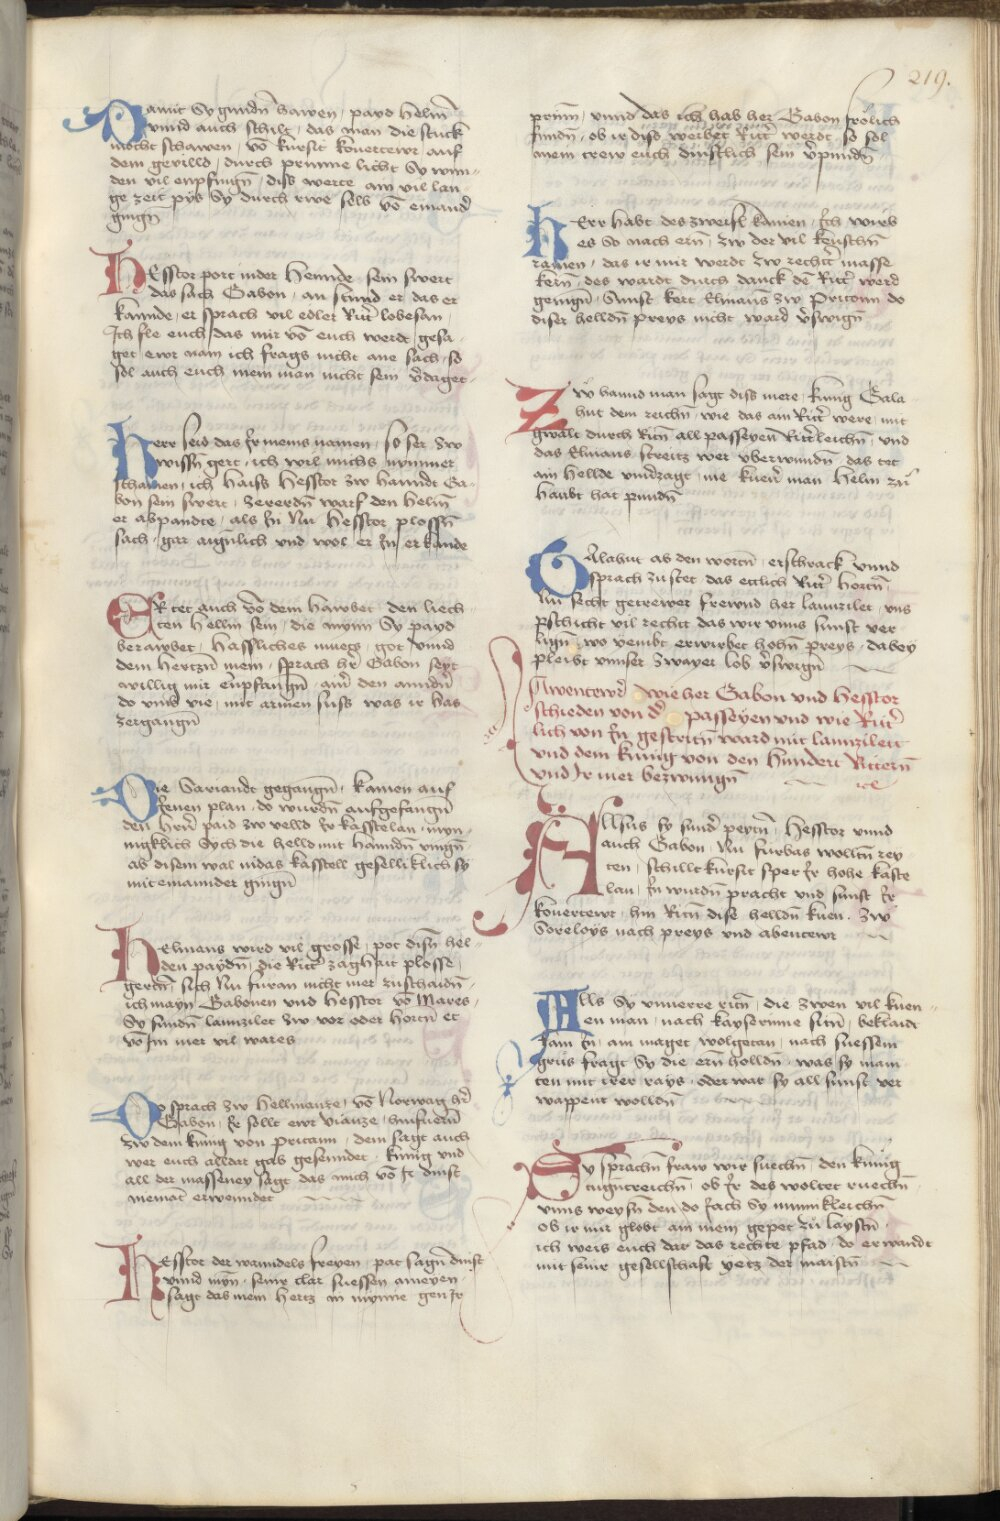 219.
Damit Sy gundñ hawen, payd helm̃
vnnd auch schilt, das man die stuckh
mocht schawen, võ kursit kouertewr, auf
dem gevilld, durch prunne licht Sy wun-
den vil enpfingñ, diss werte am vil lan-
ge zeit pys Sy durch rwe selb võ einand̃
gingñ
HEsstor pot inder Hennde sein swert
das sach Gabon, an stund er das er
kannde, er sprach vil edler Rit̃ lobesan,
Ich fle euch, das mir võ euch werdt gesa-
get ewr nam ich frags nicht ane sach, so
sol auch euch mein nam nicht sein v̉daget.
Herr seid das Ir meins namen, so ser zw
wissñ gert, ich wil michs nymmer
schamen, ich haiss Hesstor zw hanndt Ga-
bon sein swert, zererdñ warf den helm̃
er abpandte, als In Nu Hesstor plossñ
sach, gar aignlich vnd wol er In erkande
ER tet auch võ dem hawbet, den liech-
ten Hellm sein, die mynn Sy payd
berawbet, Hassliches muets, got vnnd
dem hertzñ mein, sprach hr̃ Gabon seyt
willig mir enpfangñ, am̃ den anndñ
do vmb vie, mit armen suss was ir has
zergangñ
Die Sariandt gegangñ, kamen auf
Ienen plan, do wurdñ aufgefangñ
den hrñ paid zw velld Ir kasstelan, myn-
nigklich Sych die helld mit hanndñ vingñ
ab disem wal nidas kasstell geselliklich sy
mit einannder gingñ
HElmans wird vil grosse, pot disñ hel-
den paydñ, die Rit̃ zaghait plosse,
gertñ, sich Nu furan nicht mer zuschaidñ,
ich mayn Gabonen vnd Hesstor võ Mares,
Sy fundñ lannzilet zw vor oder hortñ er
võ Im mer vil wares
Do sprach zw hellmanze, võ Norwag hr̃
Gabon, Ir sollt ewr vianze, hinfuerñ
zw dem kunig von pritann, dem sagt auch
wer euch alldar hab gesenndet, kunig vnd
all der masseney sagt das mich võ Ir dinst
nemant erwenndet
HEsstor der wanndels freyen, pat sagñ dinst
vnnd myñ, seinr clar suessen ameyen,
sagt das mein hertz in mynne gen Ir
prinn, vnnd das ich hab her Gabon frolich
fundñ, ob ir diss werber Rit̃ werdt, so sol
mein trew euch dinstlich sein v̉pundñ
Herr habt des zweifl kainen, Ich wirb
es So nach ern̄, zw der vil keuschñ
rainen, das ir mir werdt zw recht̃ masse
kern̄, des wardt durch danck dẽ Rit̃ werd
genigñ, Sunst kert Elmans zw Pritonn do
diser helldñ preys nicht ward v̉swigñ
Zw hannd man sagt diss mere, kunig Gala-
hut dem reichñ, wie das ain Rit̃ were, mit
gwalt durch Ritñ all passeyen Rit̃leichñ, vnd
das Elmans streitz wer vberwundñ, das tet
ain hellde vnv̉zagt, nie kuen̉ man Helm zu
haubt hat pundñ
GAlahut ab den wortñ, erschrack vnnd
sprach zustet das ettlich Rit̃ hortñ,
Nu secht getrewer freund her lannzilet, vns
pschicht vil rechtt das wir vnns sunst ver-
ligñ, wo yembt erwirbet hohñ preys, dabey
pleibt vnnser zwayer lob v̉swigñ
Awentewr̃ wie her Gabon vnd Hesstor
schieden von d̃ passeyen vnd wie Rit̃-
lich von In gestritñ ward mit lannzilett
vnd dem kunig von den hundert Rittern̄
vnd Ir mer bezwingñ
Allsus sy sund̃ peytñ, Hesstor vnnd
auch Gabon, Nu furbas wolltñ rey-
ten, schillt kursit sper Ir hohe kaste-
lan, In wurdñ pracht vnd sunst Ir
kouertewr, hin Ritñ dise helldñ kuen, zw
Soreloys nach preys vnd abentewr
Alls Sy vnuerre ritñ, die zwen vil kuen-
en man, nach kayserinne sitñ, beklaidt
kam In, ain maget wolgetan, nach suessem
grus fragt Sy die ern̄ holldñ, was sy main-
ten mit irer rays, oder war sy all sunst ver-
wappent wolldñ
Sy sprachñ fraw wir suechñ, den kunig
tugntreichñ, ob Ir des woltet ruechñ,
vnns weysñ den, do sach Sy mynnikleichñ
ob ir mir globt an mein gepet zu laystñ,
ich weis euch dar das rechte pfad, do erwandt
mit seinr gesellschaft yetz der maistñ